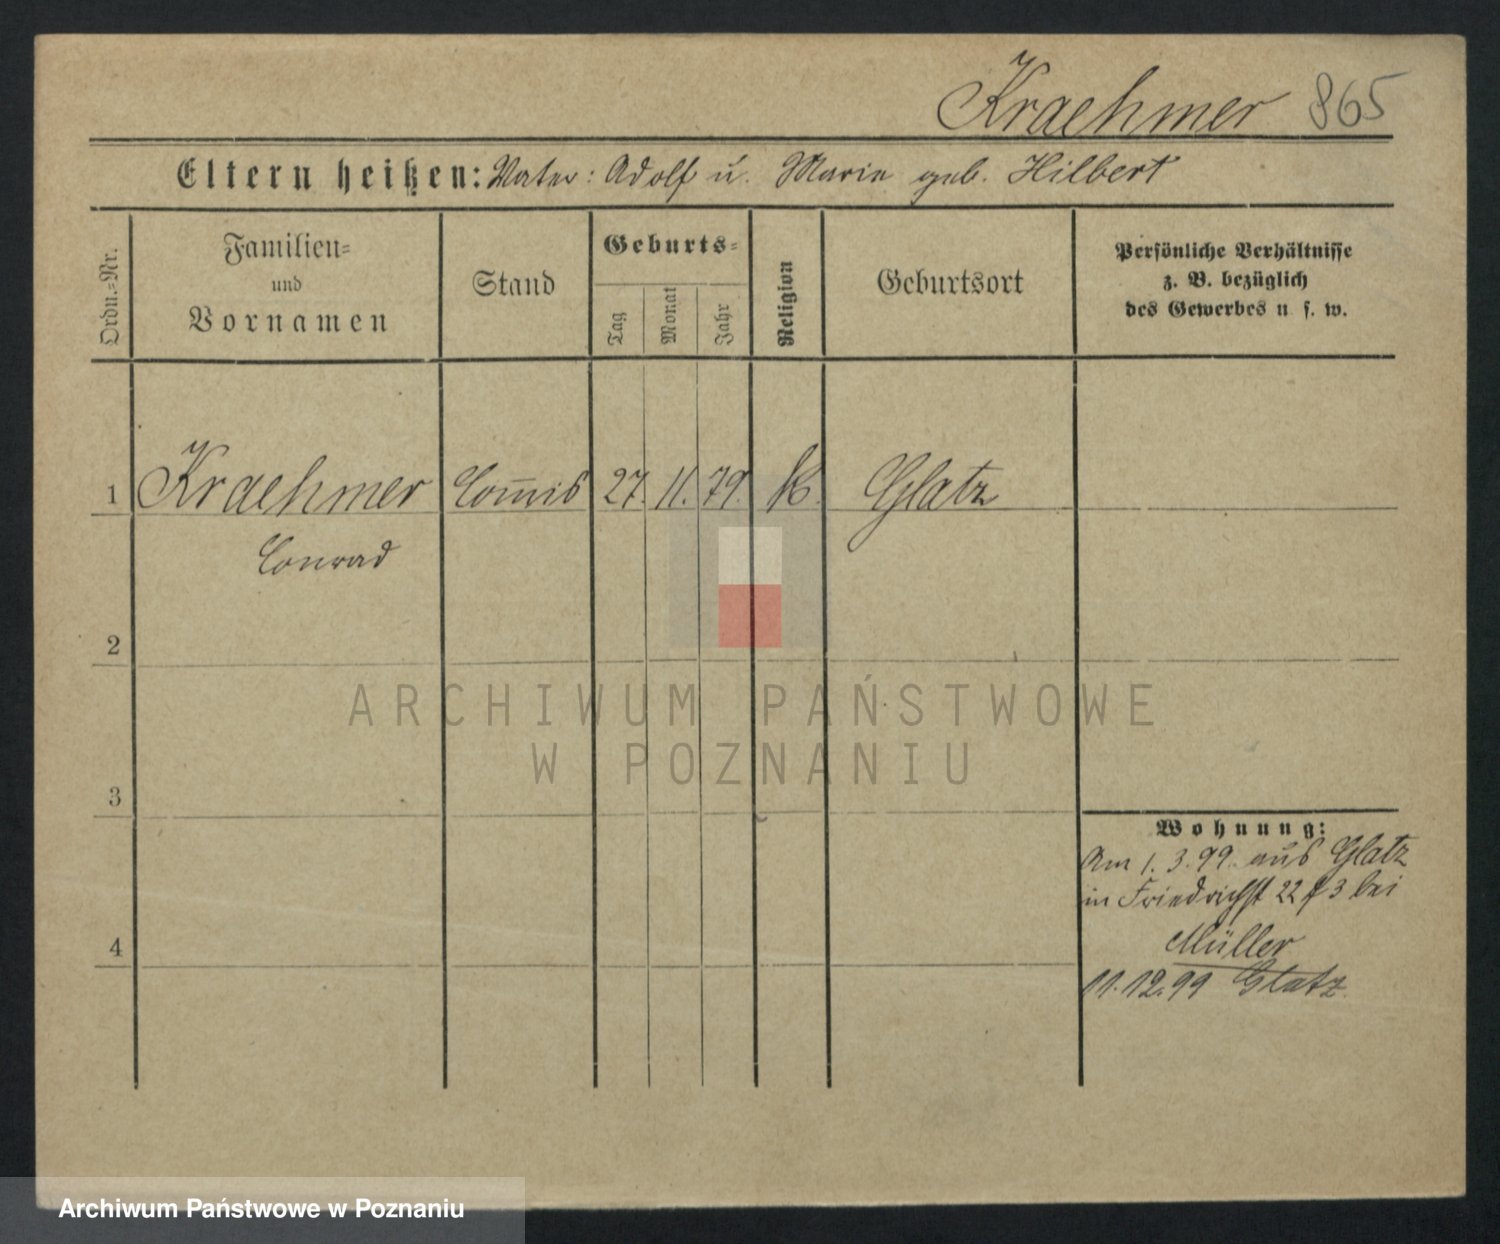 Kraehmer 865
Eltern heißen: Vater: Adolf u. Marie geb. Hilbert
Ordn.-Nr.
Familien-
und
Vornamen
Stand
Geburts-
Tag
Monat
Jahr
Religion
Geburtsort
Persönliche Verhältnisse
z. B. bezüglich
des Gewerbes u. s. w.
1 Kraehmer Com̅is 27. 11. 79. k. Glatz
Conrad
2
ARCHIWUM PAŃSTWOWE
W POZNANIU
3
Wohnung:
Am 1. 3. 99. aus Glatz
in Friedrichst 22 3 bei
Müller
4
11. 12. 99 Glatz
Archiwum Państwowe w Poznaniu